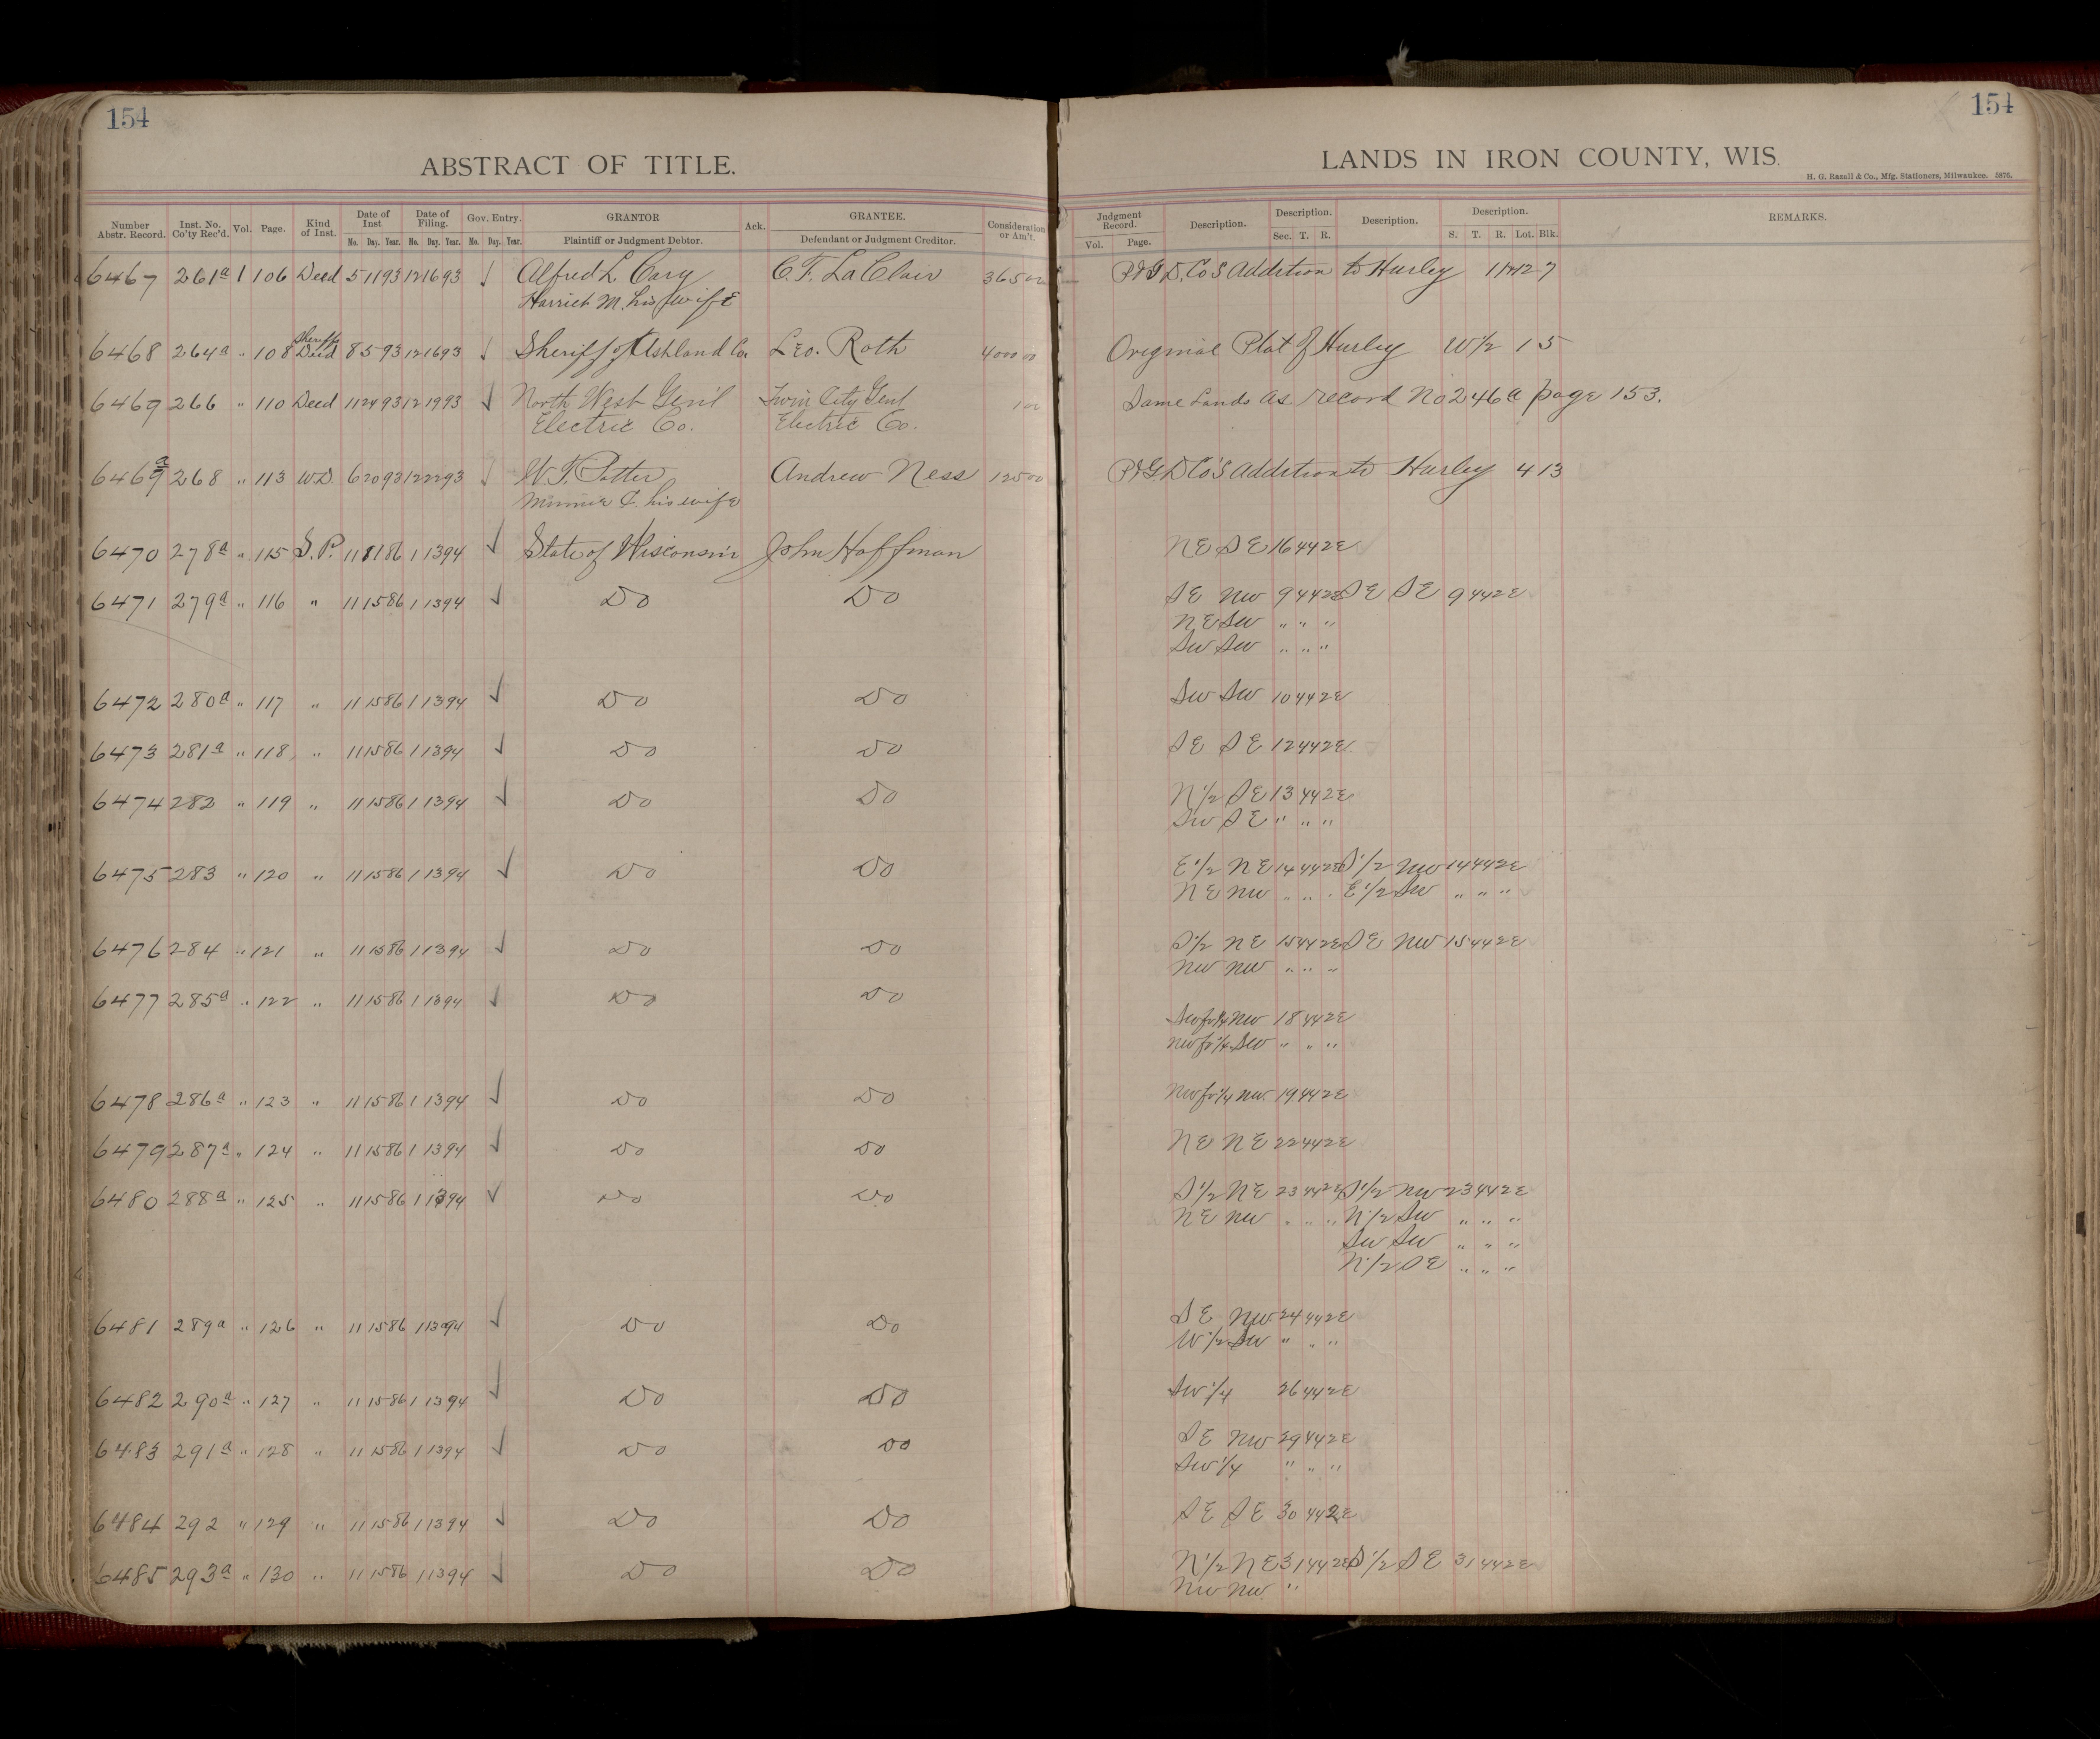 154
154
ABSTRACT OF TITLE.
LANDS IN IRON COUNTY, WIS.
H. G. Razall & Co., Mfg. Stationers, Milwaukee. 5876.
Number Abstr. Record. Inst. No. Co'ty Rec'd. Vol. Page. Kind of Inst. Date of Inst Mo. Day. Year. Date of Filing. Mo. Day. Year. Gov. Entry. Mo. Day. Year. GRANTOR Plaintiff or Judgment Debtor. Ack. GRANTEE. Defendant or Judgment Creditor. Consideration or Am't. Judgment Record. Vol. Page. Description. Description. Sec. T. R. Description. Description. S. T. R. Lot. Blk. REMARKS.
6467 261a 1 106 Deed 5 11 93 12 16 93 ✓ Alfred L. Cary C. F. LaClair 365 00 P&G D. Co's Addition to Hurley 7
Harriet M. his wife
6468 264a " 108 Sheriffs Deed 8 5 93 12 16 93 ✓ Sheriff of Ashland Co. Leo. Roth 4000 00 Original Plat of Hurley W 1/2 1 5
6469 266 " 110 Deed 11 24 93 12 19 93 ✓ North West Gen'l Twin City Genl 1 00 Same Lands as record No 246a page 153.
Electric Co. Electric Co.
6469a 268 " 113 WD 6 20 93 12 22 93 ✓ W. F. Potter Andrew Ness 125 00 P&G. D Co's Addition to Hurley 4 13
Minnie C. his wife
6470 278a " 115 S. P. 11 86 1 13 94 ✓ State of Wisconsin John Hoffman NE SE 16 44 2E
6471 279a " 116 " 11 15 86 1 13 94 ✓ Do Do SE NW 9 44 2E SE SE 9 44 2E
NE SW " " "
SW SW " " "
6472 280a " 117 " 11 15 86 1 13 94 ✓ Do Do SW SW 10 44 2E
6473 281a " 118 " 11 15 86 1 13 94 ✓ Do Do SE SE 12 44 2E
6474 282 " 119 " 11 15 86 1 13 94 ✓ Do Do N 1/2 SE 13 44 2E
SW SE " " "
6475 283 " 120 " 11 15 86 1 13 94 ✓ Do Do E 1/2 NE 14 44 2E S 1/2 NW 14 44 2E
NE NW " " " E 1/2 SW " " "
6476 284 " 121 " 11 15 86 1 13 94 ✓ Do Do S 1/2 NE 15 44 2E SE NW 15 44 2E
NW NW " " "
6477 285a " 122 " 11 15 86 1 13 94 ✓ Do Do
SW fr 1/4 NW 18 44 2E
NW fr 1/4 SW " " "
6478 286a " 123 " 11 15 86 1 13 94 ✓ Do Do NW fr 1/4 NW. 19 44 2E
6479 287a " 124 " 11 15 86 1 13 94 ✓ Do Do NE NE 22 44 2E
6480 288a " 125 " 11 15 86 1 13 94 ✓ Do Do S 1/2 NE 23 44 2E S 1/2 NW 23 44 2E
NE NW " " " N 1/2 SW " " "
SW SW " " "
N 1/2 SE " " "
6481 289a " 126 " 11 15 86 1 13 94 ✓ Do Do SE NW 24 44 2E
W 1/2 SW " " "
6482 290a " 127 " 11 15 86 1 13 94 ✓ Do Do SW 1/4 26 44 2E
6483 291a " 128 " 11 15 86 1 13 94 ✓ Do Do SE NW 29 44 2E
SW 1/4 " " "
6484 292 " 129 " 11 15 86 1 13 94 ✓ Do Do SE SE 30 44 2E
6485 293a " 130 " 11 15 86 1 13 94 ✓ Do Do N 1/2 NE 31 44 2E S 1/2 SE 31 44 2E
NW NW "